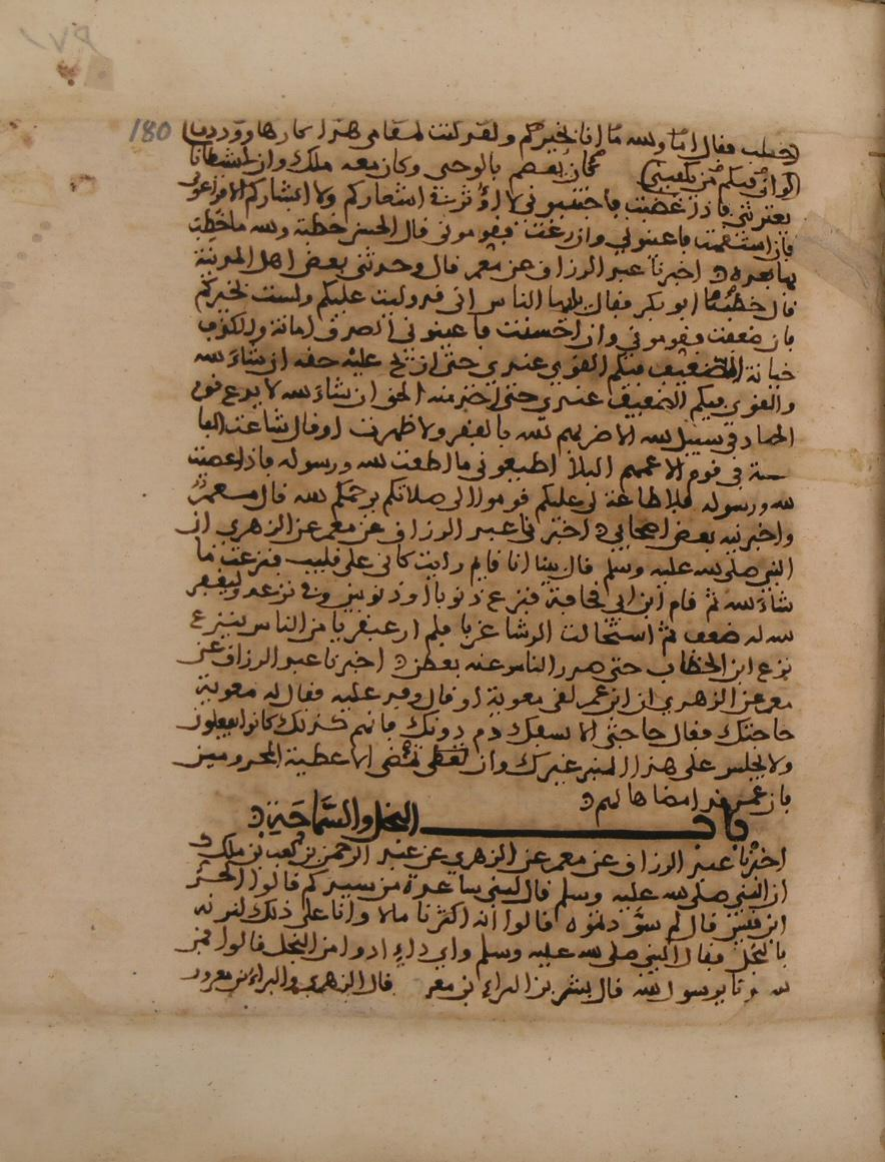 180
خطب فقال اما والله ما انا بخيركم ولقد كنت لمقامي هذا كارها ولوددت
لو ان فيكم من يكفيني كان يعصم بالوحي وكان معه ملك وان لي شيطانا
يعتريني فاذا غضبت فاجتنبوني لا اوثر في اشعاركم ولا ابشاركم الا فراعوني
فان استقمت فاعينوني وان زغت فقوموني قال الحسن خطبة والله ما خطب
بها بعده اخبرنا عبد الرزاق عن معمر قال وحدثني بعض اهل المدينة
قال خطبنا ابو بكر فقال يايها الناس اني قد وليت عليكم ولست بخيركم
فان ضعفت فقوموني وان احسنت فاعينوني الصدق امانة والكذب
خيانة الضعيف فيكم القوي عندي حتى ازيح عليه حقه ان شاء الله
والقوي فيكم الضعيف عندي حتى اخذ منه الحق ان شاء الله لا يدع قوم
الجهاد في سبيل الله الا ضربهم الله بالفقر ولا ظهرت او قال شاعت الفا
حشة في قوم الا عمهم البلا اطيعوني ما اطعت الله ورسوله فاذا عصيت
الله ورسوله فلا طاعة لي عليكم قوموا الى صلاتكم يرحمكم الله قال معمر
واخبرنيه بعض اصحابي اخبرنا عبد الرزاق عن معمر عن الزهري ان
النبي صلى الله عليه وسلم قال بينا انا نايم رايت كاني على قليب فنزعت ما
شاء الله ثم قام ابن ابي قحافة فنزع ذنوبا او ذنوبين وفي نزعه وليغفر
الله له ضعف ثم استحالت الرشا غربا فلم ار عبقريا من الناس ينزع
نزع ابن الخطاب حتى صدر الناس عنه بعطن اخبرنا عبد الرزاق عن
معمر عن الزهري ان ابن عمر لقي معوية او قال وفد عليه فقال له معوية
حاجتك فقال حاجتي الا يسفك دم دونك فانهم كذلك كانوا يفعلون
ولا يجلس على هذا المنبر غيرك وان تمضي الاعطية للمحرومين
فان عمر قد امضاها لهم
باب البخل والشجاعة
اخبرنا عبد الرزاق عن معمر عن الزهري عن عبد الرحمن بن كعب بن ملك
ان النبي صلى الله عليه وسلم قال لبني ساعدة من سيدكم قالوا الجد
ابن قيس قال لم سودتموه قالوا انه اكثرنا مالا وانا على ذلك لنزنه
بالبخل فقال النبي صلى الله عليه وسلم واي داء ادوا من البخل قالوا فمن
سيدنا يرسول الله قال بشر بن البراء بن معر قال الزهري والبراء بن معرور